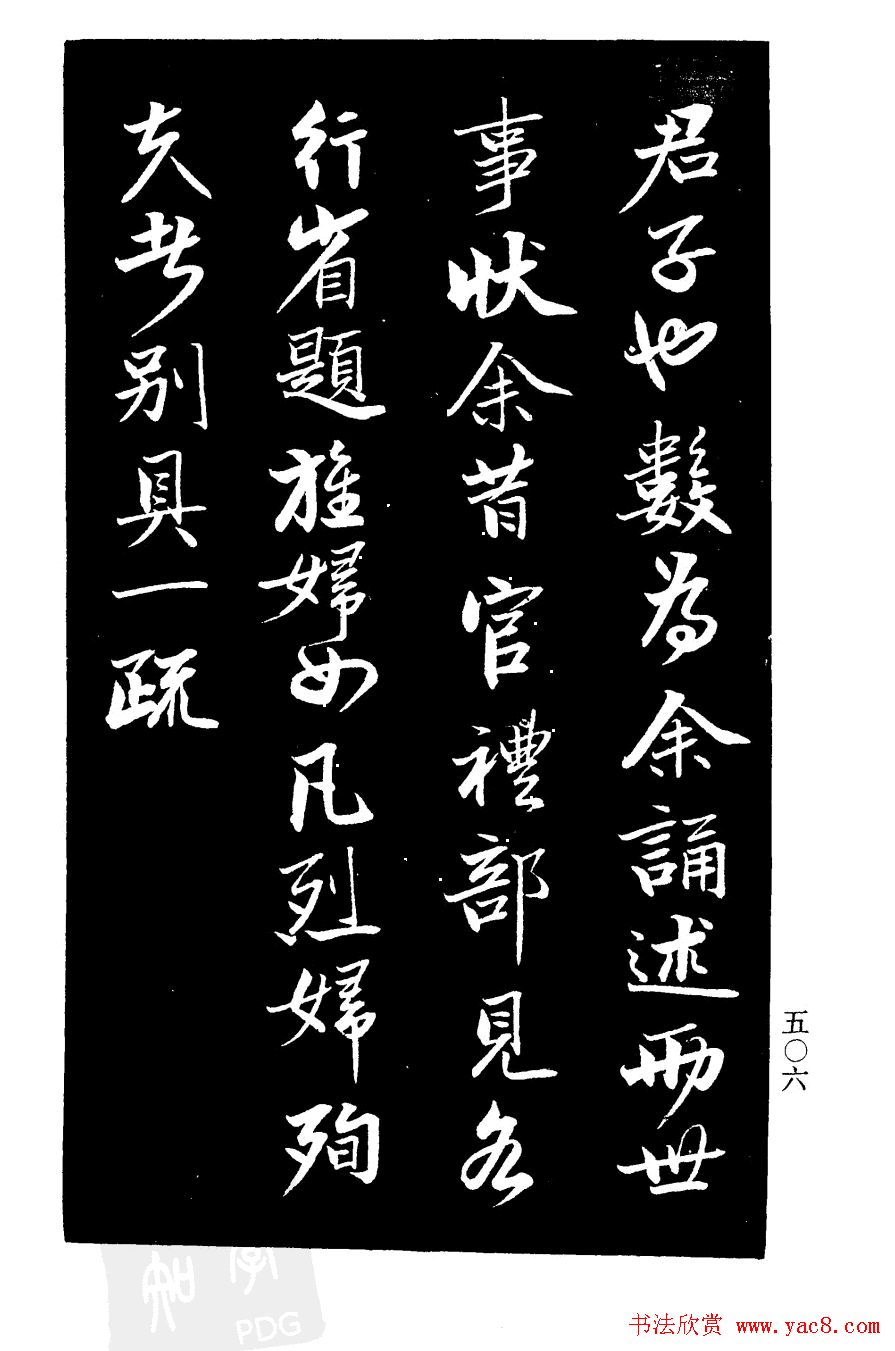 君子也數為余誦述兩世
事狀余昔官禮部見各
行省題旌婦女凡烈婦殉
夫者別具一疏
五〇六
PDG
书法欣赏 www.yac8.com